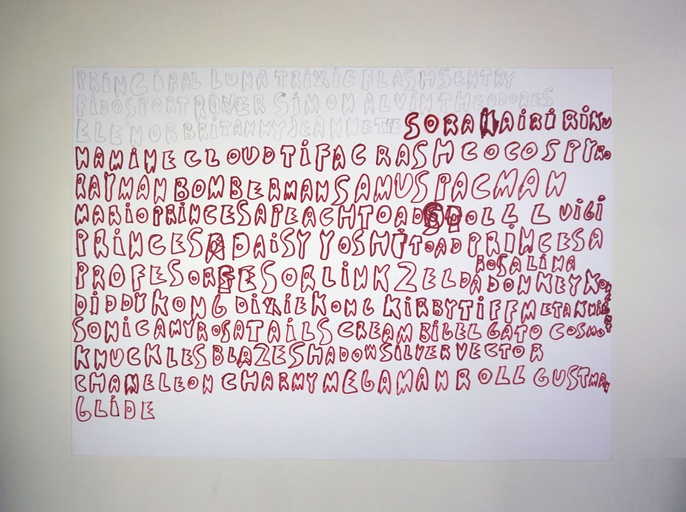 PRINCIPAL LUNA TRIXIE FLASH SENTRY
FIDO SPORT ROVER SIMON ALVIN THEODORES
ELENOR BRITANNY JEANNETTE SORA KAIRI RIKU
NAMINE CLOUD TIFA CRASH COCO SPYRO
RAYMAN BOMBERMAN SAMUS PACMAN
MARIO PRINCESA PEACH TOAD TOLL LUIGI
PRINCESA DAISY YOSHI TOAD PRINCESA
ROSALINA
PROFESOR E SOR LINK ZELDA DONKEY KONG
DIDDY KONG DIXIE KONG KIRBY TIFF METAKNIGHT
SONIC AMY ROSA TAILS CREAM BIG EL GATO COSMO
KNUCKLES BLAZE SHADOW SILVER VECTOR
CHAMELEON CHARMY MEGAMAN ROLL GUSTMAN
GLIDE